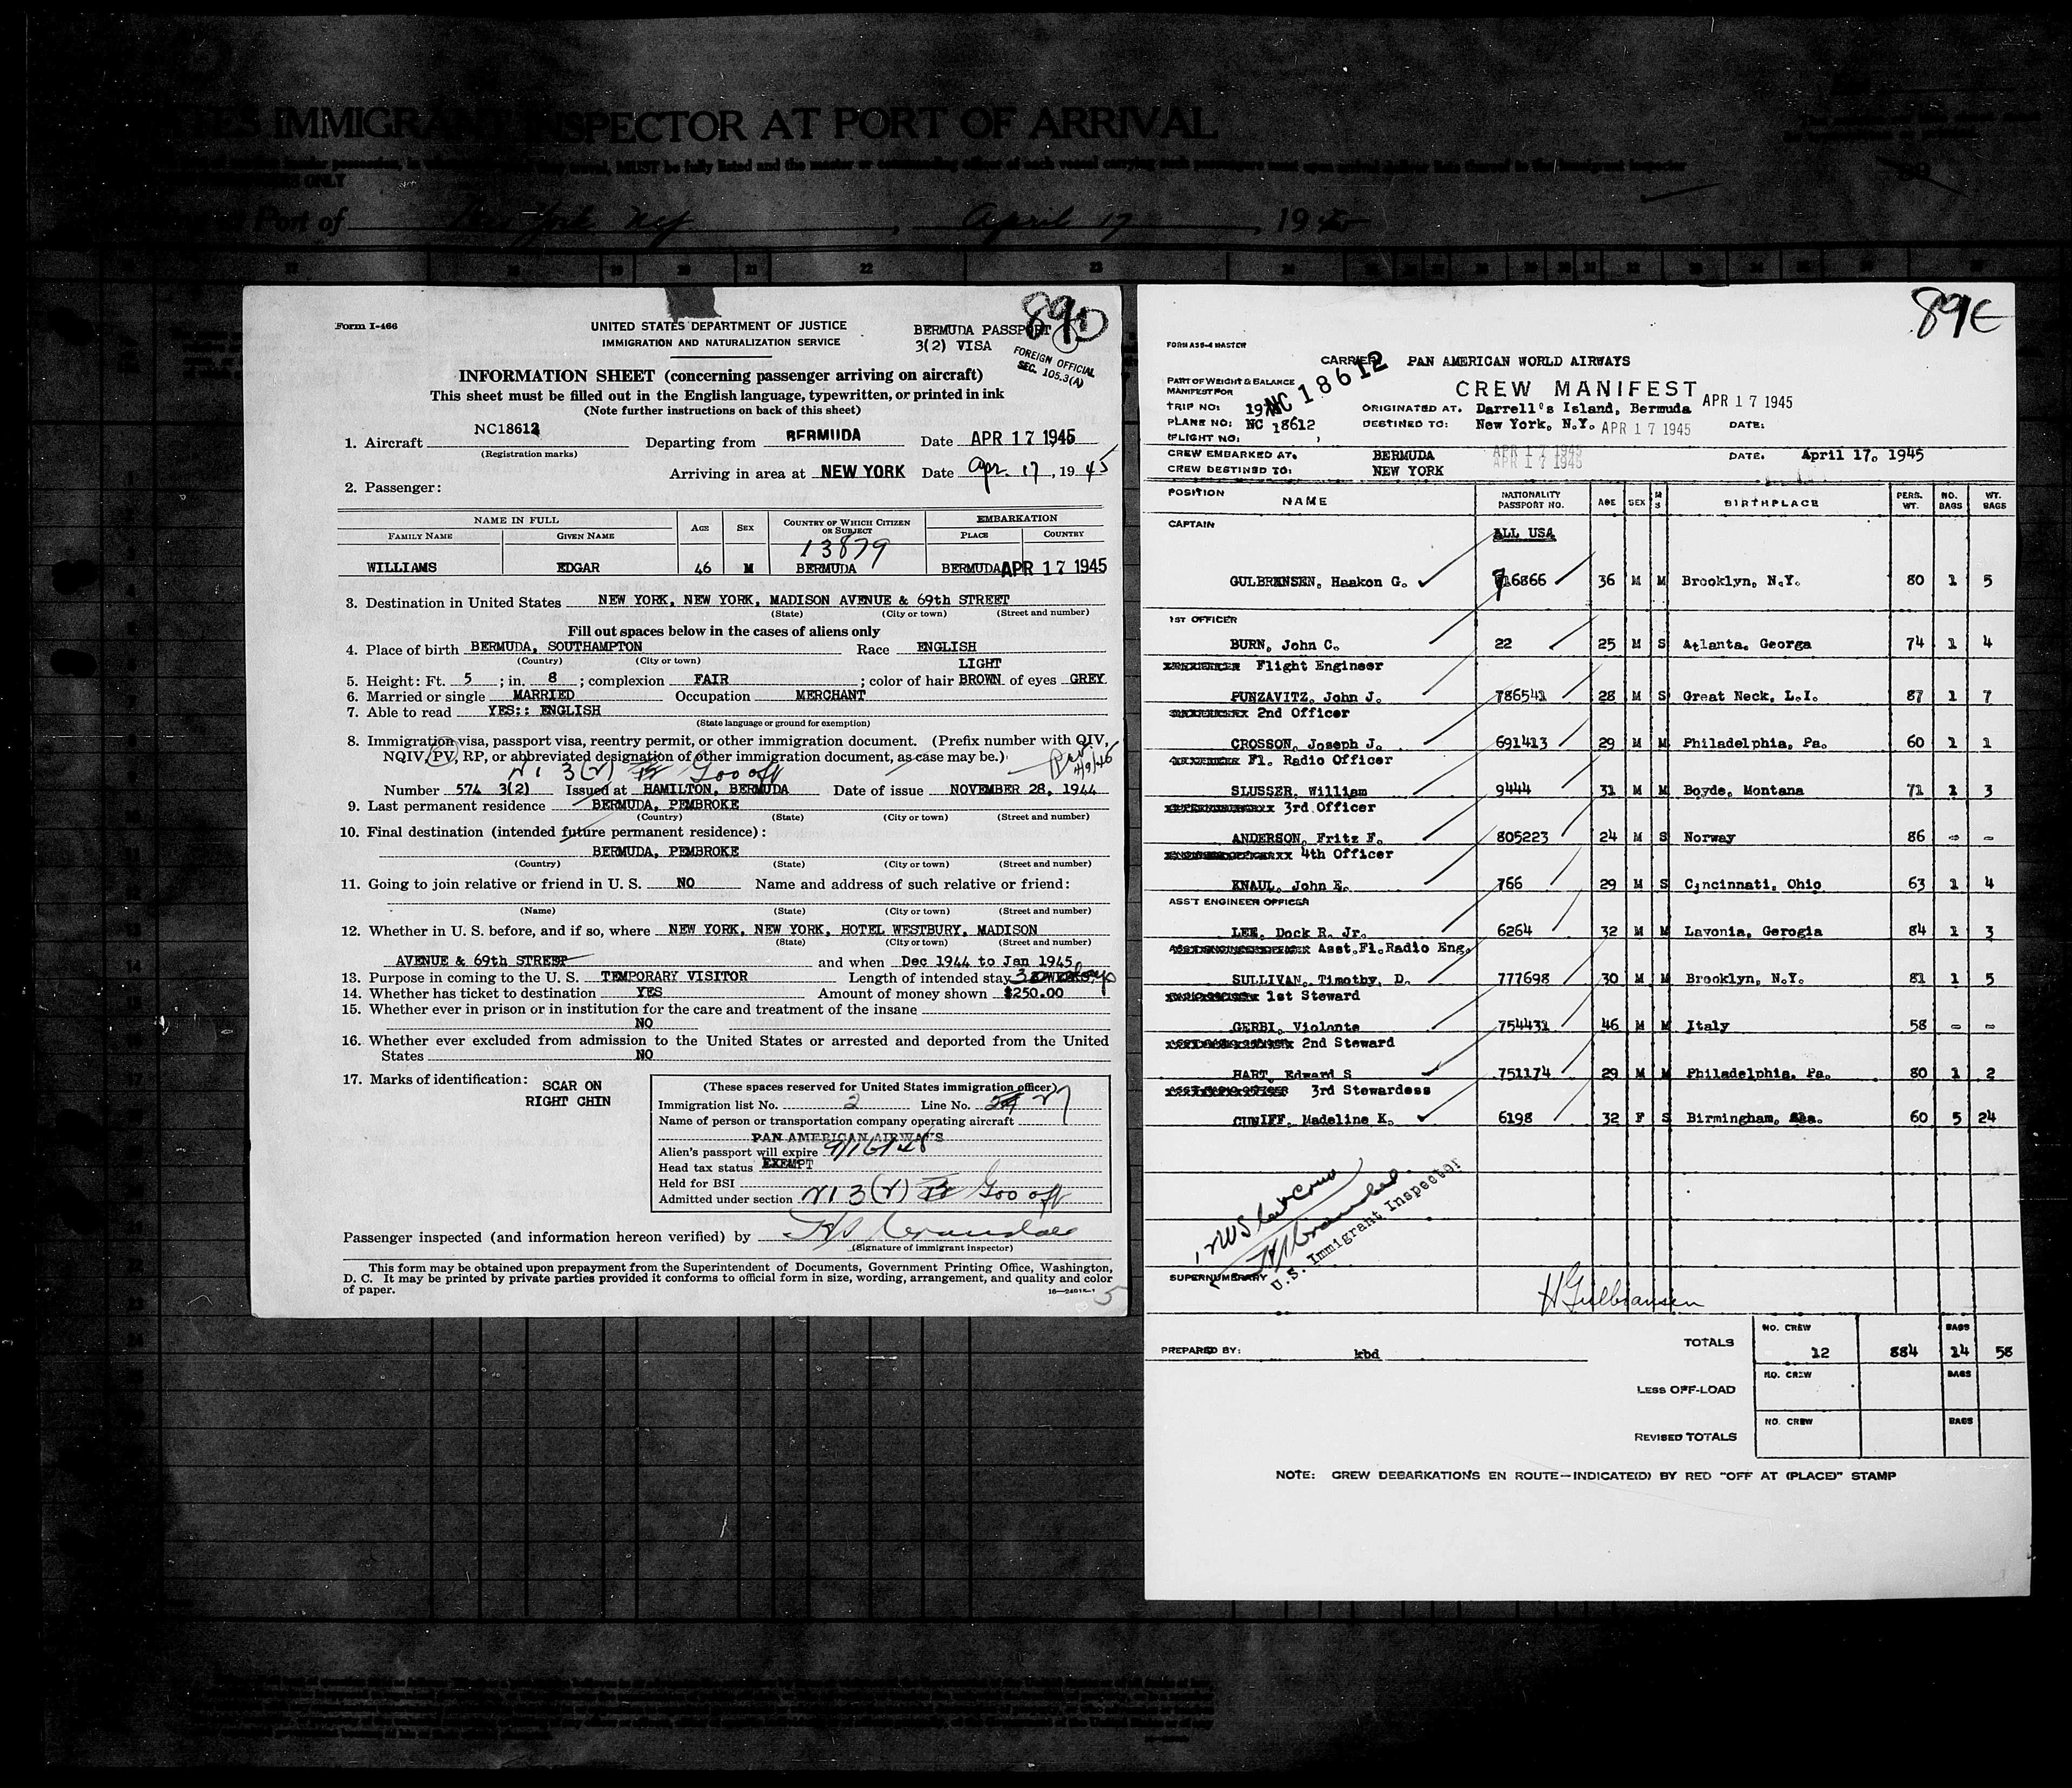 IMMIGRANT INSPECTOR AT PORT OF ARRIVAL
Port of New York NY, April 17, 19
89D
Form I-466
UNITED STATES DEPARTMENT OF JUSTICE
IMMIGRATION AND NATURALIZATION SERVICE
BERMUDA PASSPORT
3(2) VISA
FOREIGN OFFICIAL
SEC. 105.3(A)
INFORMATION SHEET (concerning passenger arriving on aircraft)
This sheet must be filled out in the English language, typewritten, or printed in ink
(Note further instructions on back of this sheet)
1. Aircraft NC18612 Departing from BERMUDA Date APR 17 1945
(Registration marks)
Arriving in area at NEW YORK Date Apr. 17, 1945
2. Passenger:
NAME IN FULL AGE SEX COUNTRY OF WHICH CITIZEN OR SUBJECT EMBARKATION
FAMILY NAME GIVEN NAME PLACE COUNTRY
13879
WILLIAMS EDGAR 46 M BERMUDA BERMUDA APR 17 1945
3. Destination in United States NEW YORK, NEW YORK, MADISON AVENUE & 69th STREET
(State) (City or town) (Street and number)
Fill out spaces below in the cases of aliens only
4. Place of birth BERMUDA, SOUTHAMPTON Race ENGLISH
(Country) (City or town)
LIGHT
5. Height: Ft. 5; in. 8; complexion FAIR; color of hair BROWN of eyes GREY
6. Married or single MARRIED Occupation MERCHANT
7. Able to read YES:: ENGLISH
(State language or ground for exemption)
8. Immigration visa, passport visa, reentry permit, or other immigration document. (Prefix number with QIV,
NQIV, PV, RP, or abbreviated designation of other immigration document, as case may be.)
Number 574 3(2) Issued at HAMILTON, BERMUDA Date of issue NOVEMBER 28, 1944
9. Last permanent residence BERMUDA, PEMBROKE
(Country) (State) (City or town) (Street and number)
10. Final destination (intended future permanent residence):
BERMUDA, PEMBROKE
(Country) (State) (City or town) (Street and number)
11. Going to join relative or friend in U. S. NO Name and address of such relative or friend:
(Name) (State) (City or town) (Street and number)
12. Whether in U. S. before, and if so, where NEW YORK, NEW YORK, HOTEL WESTBURY, MADISON
(State) (City or town) (Street and number)
AVENUE & 69th STREET and when Dec 1944 to Jan 1945
13. Purpose in coming to the U. S. TEMPORARY VISITOR Length of intended stay
14. Whether has ticket to destination YES Amount of money shown $250.00
15. Whether ever in prison or in institution for the care and treatment of the insane
NO
16. Whether ever excluded from admission to the United States or arrested and deported from the United
States NO
17. Marks of identification: SCAR ON
RIGHT CHIN
(These spaces reserved for United States immigration officer)
Immigration list No. 2 Line No. 27
Name of person or transportation company operating aircraft
PAN AMERICAN AIRWAYS
Alien's passport will expire
Head tax status EXEMPT
Held for BSI
Admitted under section
Passenger inspected (and information hereon verified) by
(Signature of immigrant inspector)
This form may be obtained upon prepayment from the Superintendent of Documents, Government Printing Office, Washington,
D. C. It may be printed by private parties provided it conforms to official form in size, wording, arrangement, and quality and color
of paper.
5
89E
FORM A30-4 MASTER
CARRIER PAN AMERICAN WORLD AIRWAYS
NC 18612
PART OF WEIGHT & BALANCE
MANIFEST FOR
CREW MANIFEST APR 17 1945
TRIP NO: ORIGINATED AT. Darrell's Island, Bermuda
PLANE NO: NC 18612 DESTINED TO: New York, N.Y. APR 17 1945 DATE:
(FLIGHT NO:
CREW EMBARKED AT. BERMUDA APR 17 1945 DATE. April 17. 1945
CREW DESTINED TO: NEW YORK APR 17 1945
POSITION NAME NATIONALITY PASSPORT NO. AGE SEX M S BIRTHPLACE PERS. WT. NO. BAGS WT. BAGS
CAPTAIN
ALL USA
GULBRENSEN, Haakon G. 716866 36 M M Brooklyn, N.Y. 80 1 5
1ST OFFICER
BURN, John C. 22 25 M S Atlanta. Georga 74 1 4
Flight Engineer
PUNZAVITZ, John J. 786541 28 M S Great Neck, L.I. 87 1 7
2nd Officer
CROSSON, Joseph J. 691413 29 M M Philadelphia, Pa. 60 1 1
Fl. Radio Officer
SLUSSER, William 9444 31 M M Boyde, Montana 71 1 3
3rd Officer
ANDERSON, Fritz F. 805223 24 M S Norway 86 - -
4th Officer
KNAUL, John E. 766 29 M S Cincinnati, Ohio 63 1 4
ASS'T ENGINEER OFFICER
LEE, Dock R. Jr. 6264 32 M M Lavonia, Gerogia 84 1 3
Asst.Fl.Radio Eng.
SULLIVAN, Timothy, D. 777698 30 M M Brooklyn, N.Y. 81 1 5
1st Steward
GERBI, Violante 754431 46 M M Italy 58 - -
2nd Steward
HART, Edward S 751174 29 M M Philadelphia, Pa. 80 1 2
3rd Stewardess
CUNIFF, Madeline K. 6198 32 F S Birmingham, Ala. 60 5 24
U.S. Immigrant Inspector
SUPERNUMERARY
H Gulbransen
TOTALS NO. CREW 12 884 BAGS 14 58
PREPARED BY: kbd
LESS OFF-LOAD NO. CREW BAGS
REVISED TOTALS NO. CREW BAGS
NOTE: CREW DEBARKATIONS EN ROUTE—INDICATE(D) BY RED "OFF AT (PLACE)" STAMP